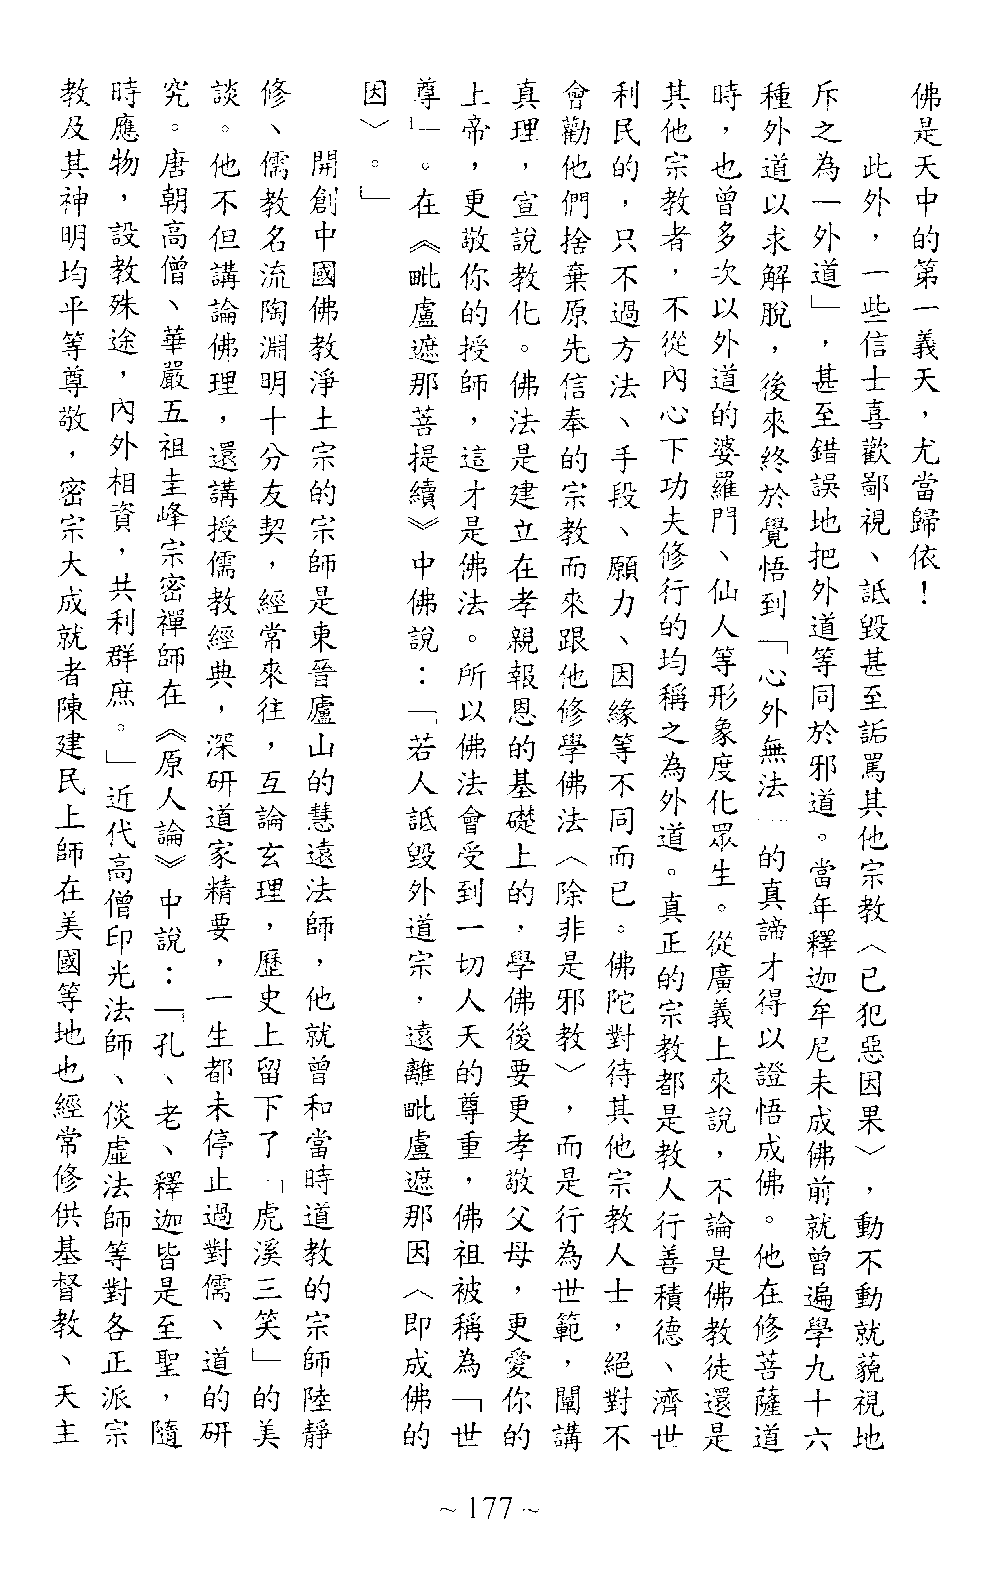 佛是天中的第一義天，尤當歸依！
此外，一些信士喜歡鄙視、詆毀甚至詬罵其他宗教（已犯惡因果），動不動就藐視地
斥之為「外道」，甚至錯誤地把外道等同於邪道。當年釋迦牟尼未成佛前就曾遍學九十六
種外道以求解脫，後來終於覺悟到「心外無法」的真諦才得以證悟成佛。他在修菩薩道
時，也曾多次以外道的婆羅門、仙人等形象度化眾生。從廣義上來說，不論是佛教徒還是
其他宗教者，不從內心下功夫修行的均稱之為外道。真正的宗教都是教人行善積德、濟世
利民的，只不過方法、手段、願力、因緣等不同而已。佛陀對待其他宗教人士，絕對不
會勸他們捨棄原先信奉的宗教而來跟他修學佛法（除非是邪教），而是行為世範，闡講
真理，宣說教化。佛法是建立在孝親報恩的基礎上的，學佛後要更孝敬父母，更愛你的
上帝，更敬你的授師，這才是佛法。所以佛法會受到一切人天的尊重，佛祖被稱為「世
尊」。在《毗盧遮那菩提續》中佛說：「若人詆毀外道宗，遠離毗盧遮那因（即成佛的
因）。」
開創中國佛教淨土宗的宗師是東晉廬山的慧遠法師，他就曾和當時道教的宗師陸靜
修、儒教名流陶淵明十分友契，經常來往，互論玄理，歷史上留下了「虎溪三笑」的美
談。他不但講論佛理，還講授儒教經典，深研道家精要，一生都未停止過對儒、道的研
究。唐朝高僧、華嚴五祖圭峰宗密禪師在《原人論》中說：「孔、老、釋迦皆是至聖，隨
時應物，設教殊途，內外相資，共利群庶。」近代高僧印光法師、倓虛法師等對各正派宗
教及其神明均平等尊敬，密宗大成就者陳建民上師在美國等地也經常修供基督教、天主
~ 177 ~